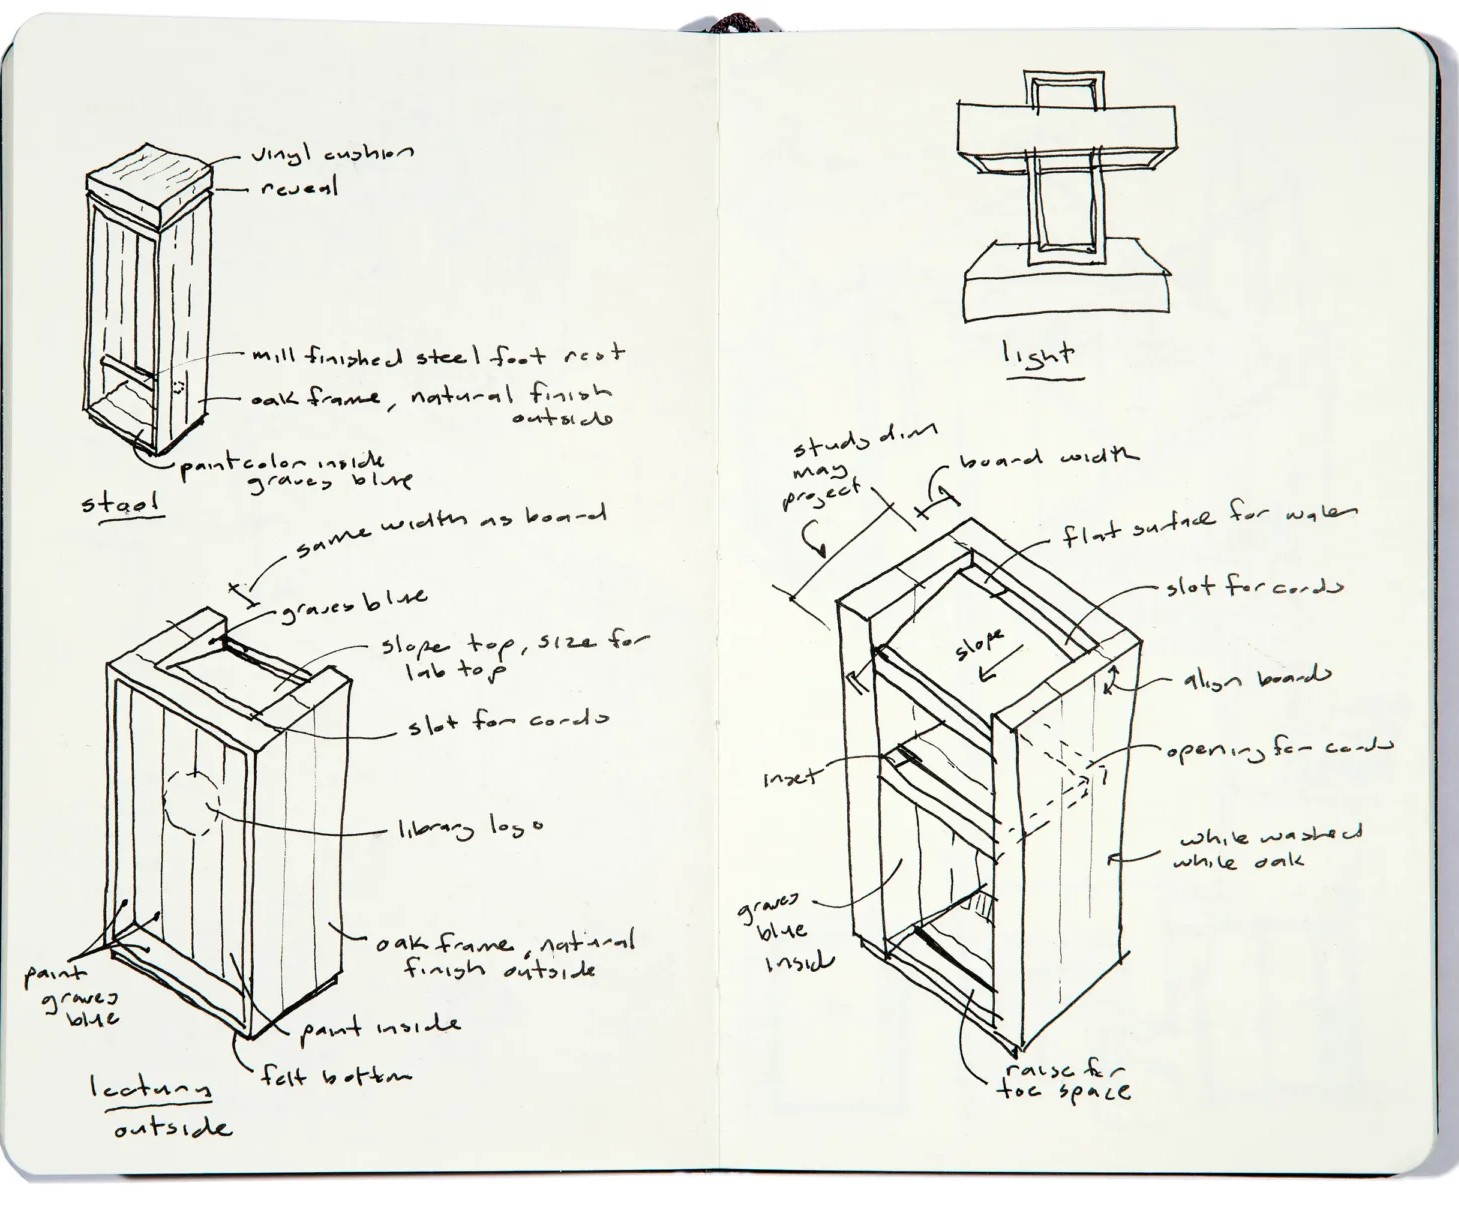 vinyl cushion
reveal
mill finished steel foot rest
oak frame, natural finish
outside
paint color inside
graves blue
stool
same width as board
graves blue
slope top, size for
lab top
slot for cords
library logo
oak frame, natural
finish outside
paint
graves
blue
paint inside
felt bottom
lectury
outside
light
study dim
may
project
board width
flat surface for
slot for cords
slope
align boards
opening for cords
inset
while washed
while oak
graves
blue
inside
raise for
toe space